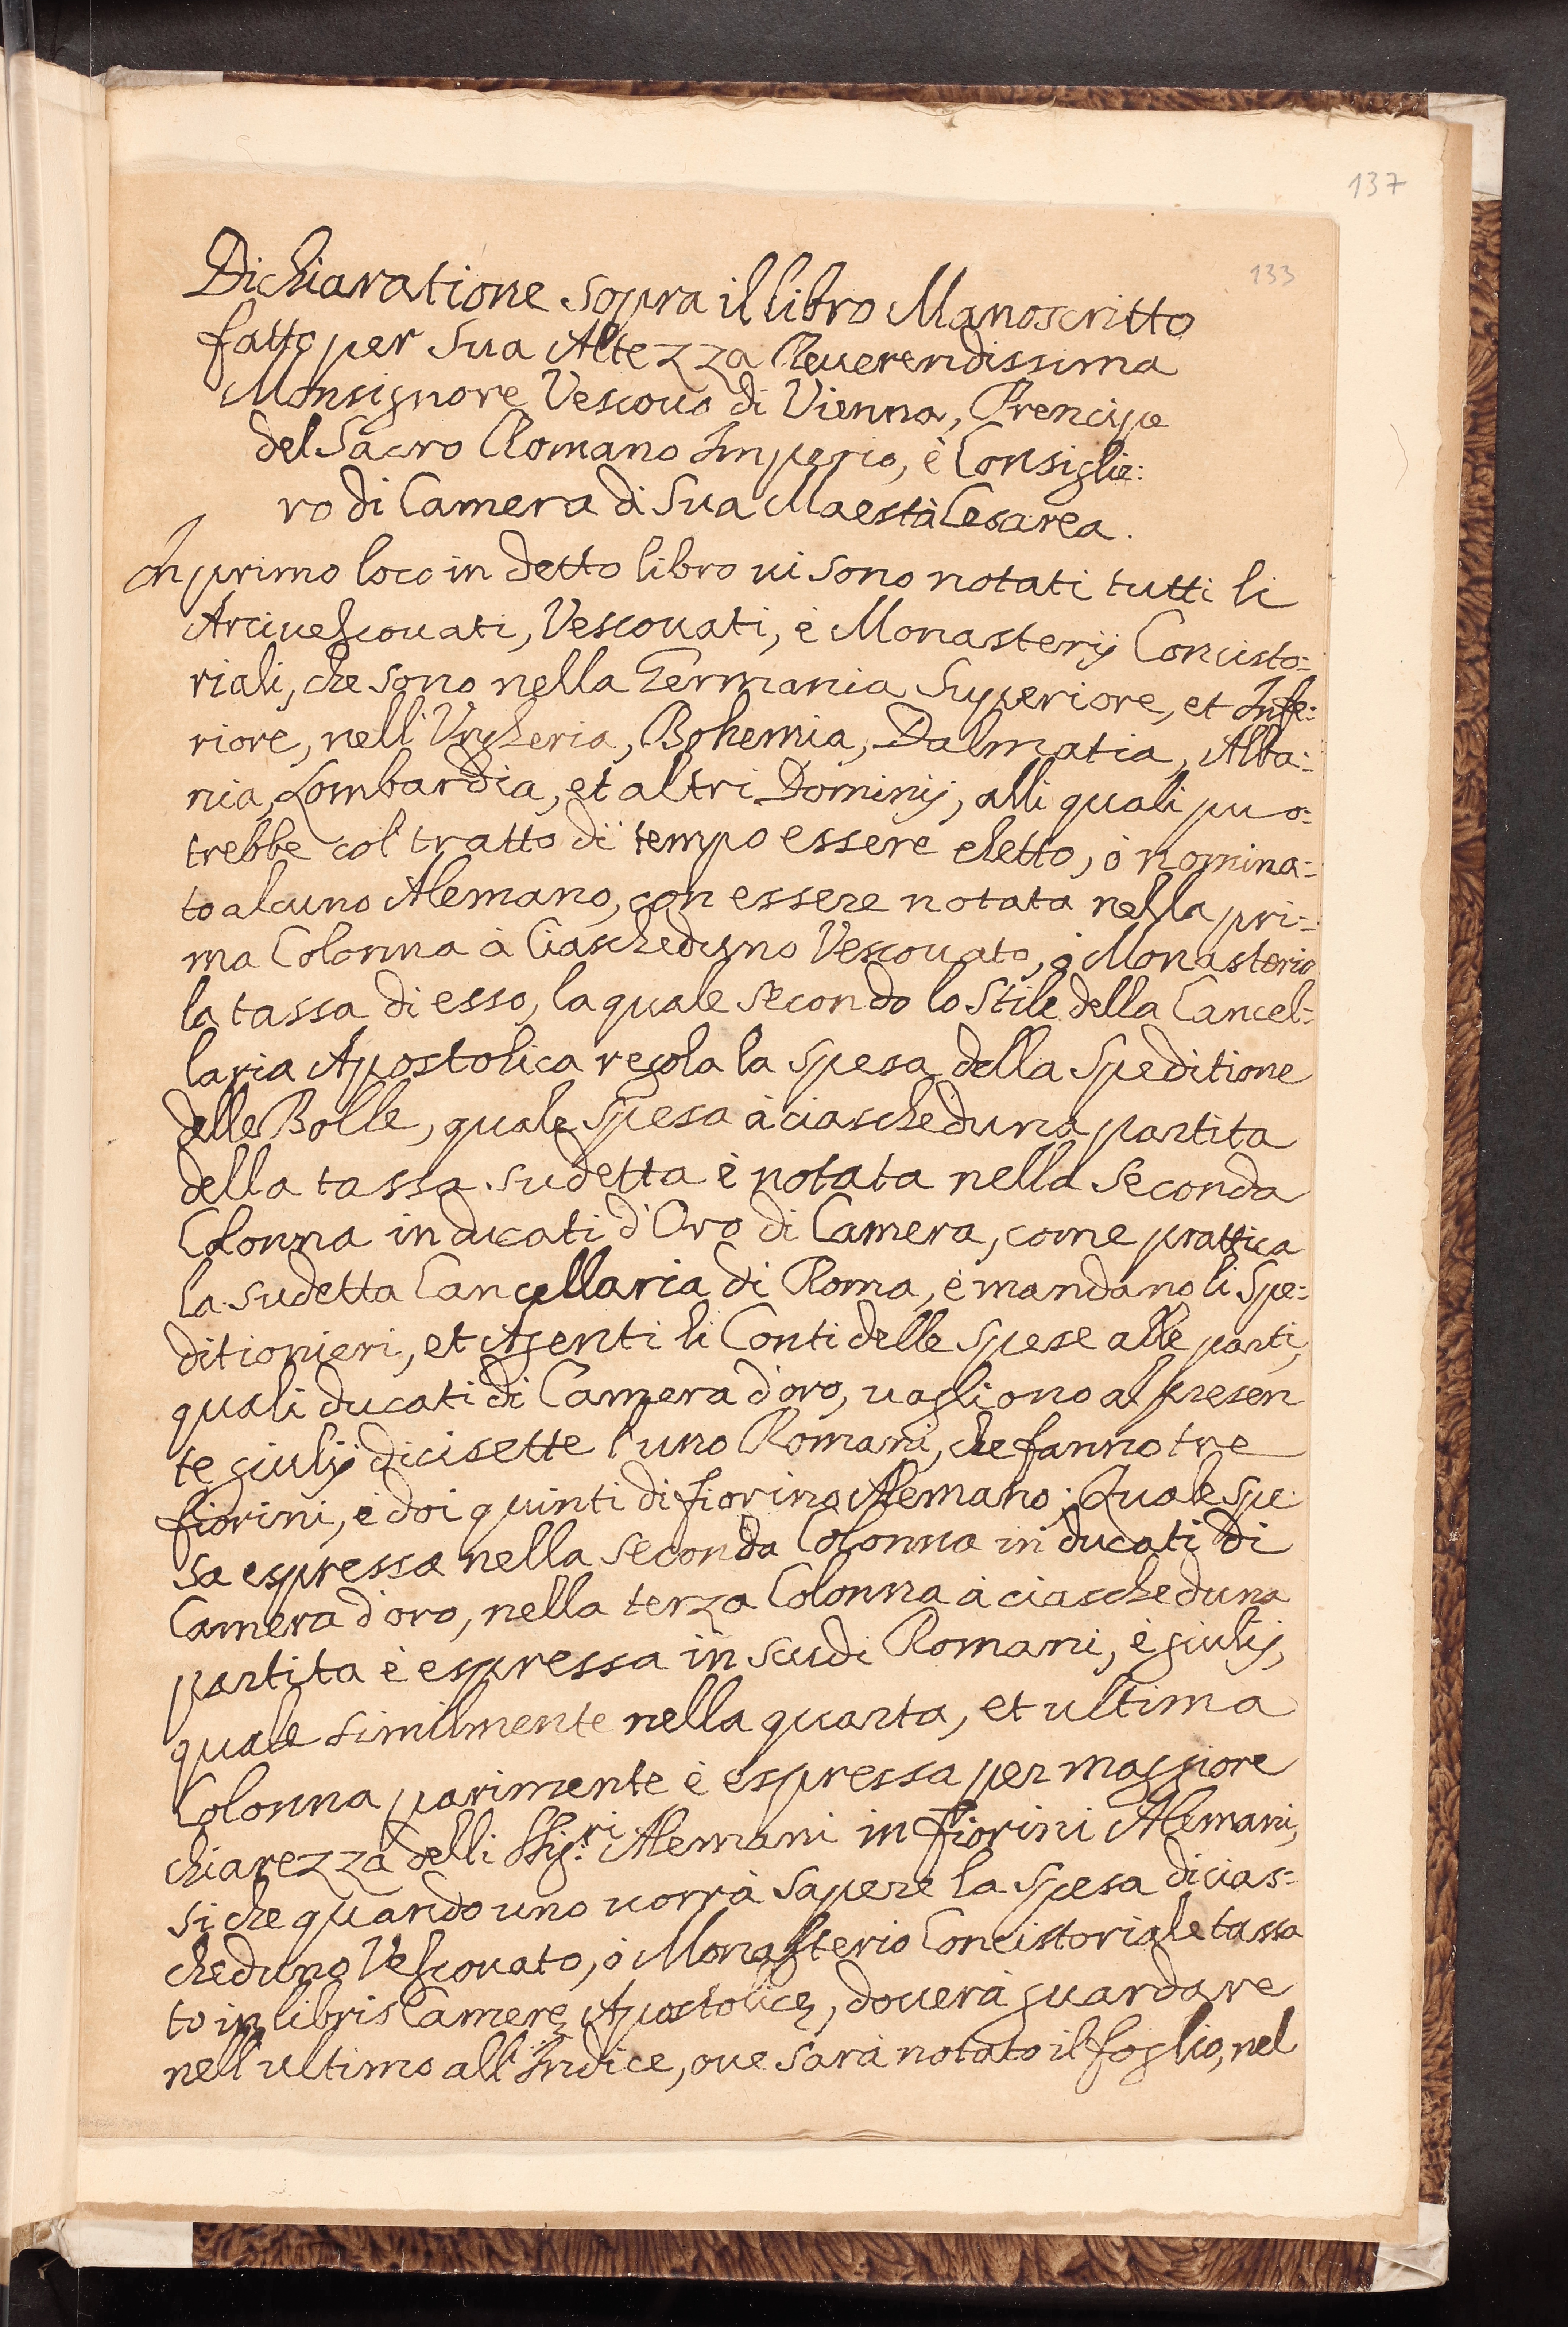 137
133
Dichiaratione sopra il libro Manoscritto
fatto per Sua Altezza Reuerendissima
Monsignore Vescouo di Vienna, Prencipe
del Sacro Romano Imperio, è Consiglie:
ro di Camera di Sua Maestà Cesarea.
In primo loco in detto libro ui sono notati tutti li
Arciuescouati, Vescouati, è Monasterij Concisto:
riali, che sono nella Germania Superiore, et Infe:
riore, nell' Vngheria, Bohemia, Dalmatia, Alba:
nia, Lombardia, et altri Dominij, alli quali puo:
trebbe col tratto di tempo essere eletto, ò nomina:
to alcuno Alemano, con essere notata nella pri:
ma Colonna à Ciascheduno Vescouato, ò Monasterio
la tassa di esso, la quale secondo lo Stile della Cancel:
laria Apostolica regola la spesa della Speditione
delle Bolle, quale spesa à ciascheduna partita
della tassa sudetta è notata nella seconda
Colonna in ducati d'Oro di Camera, come prattica
la sudetta Cancellaria di Roma, è mandano li Spe:
ditionieri, et Agenti li Conti delle spese alle parti,
quali ducati di Camera d'oro, uagliono al presen
te giulij dicisette l'uno Romani, che fanno tre
fiorini, è doi quinti di fiorino Alemano; Quale spe:
sa espressa nella seconda Colonna in ducati di
Camera d'oro, nella terza Colonna à ciascheduna
partita è espressa in scudi Romani, è giulij,
quale similmente nella quarta, et ultima
Colonna parimente è espressa per maggiore
chiarezza delli SSig.ri Alemani in fiorini Alemani,
si che quando uno uorrà sapere la spesa di cias:
cheduno Vescouato, ò Monasterio Concistoriale tassa
to in libris Camerę Apostolicę, douerà guardare
nell'ultimo all'Indice, oue sarà notato il foglio, nel